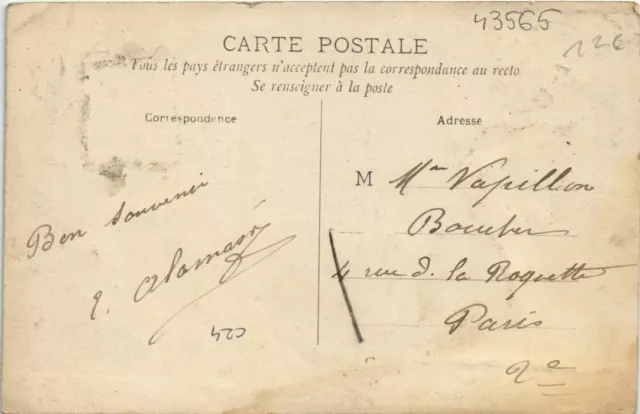 43565
12€
CARTE POSTALE
Tous les pays étrangers n'acceptent pas la correspondance au recto
Se renseigner à la poste
Correspondance
Bon Souvenir
420
Adresse
M Mme Vapillon
4 rue d. la Roquette
Paris